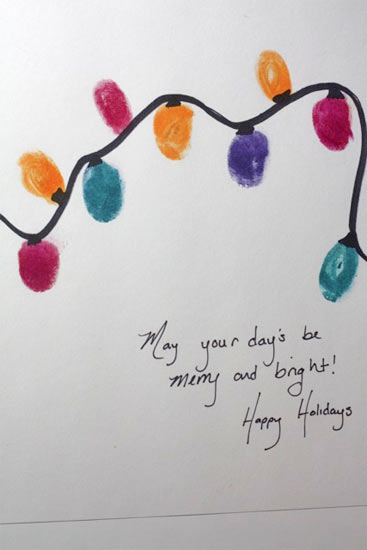 May your day's be
merry and bright!
Happy Holidays